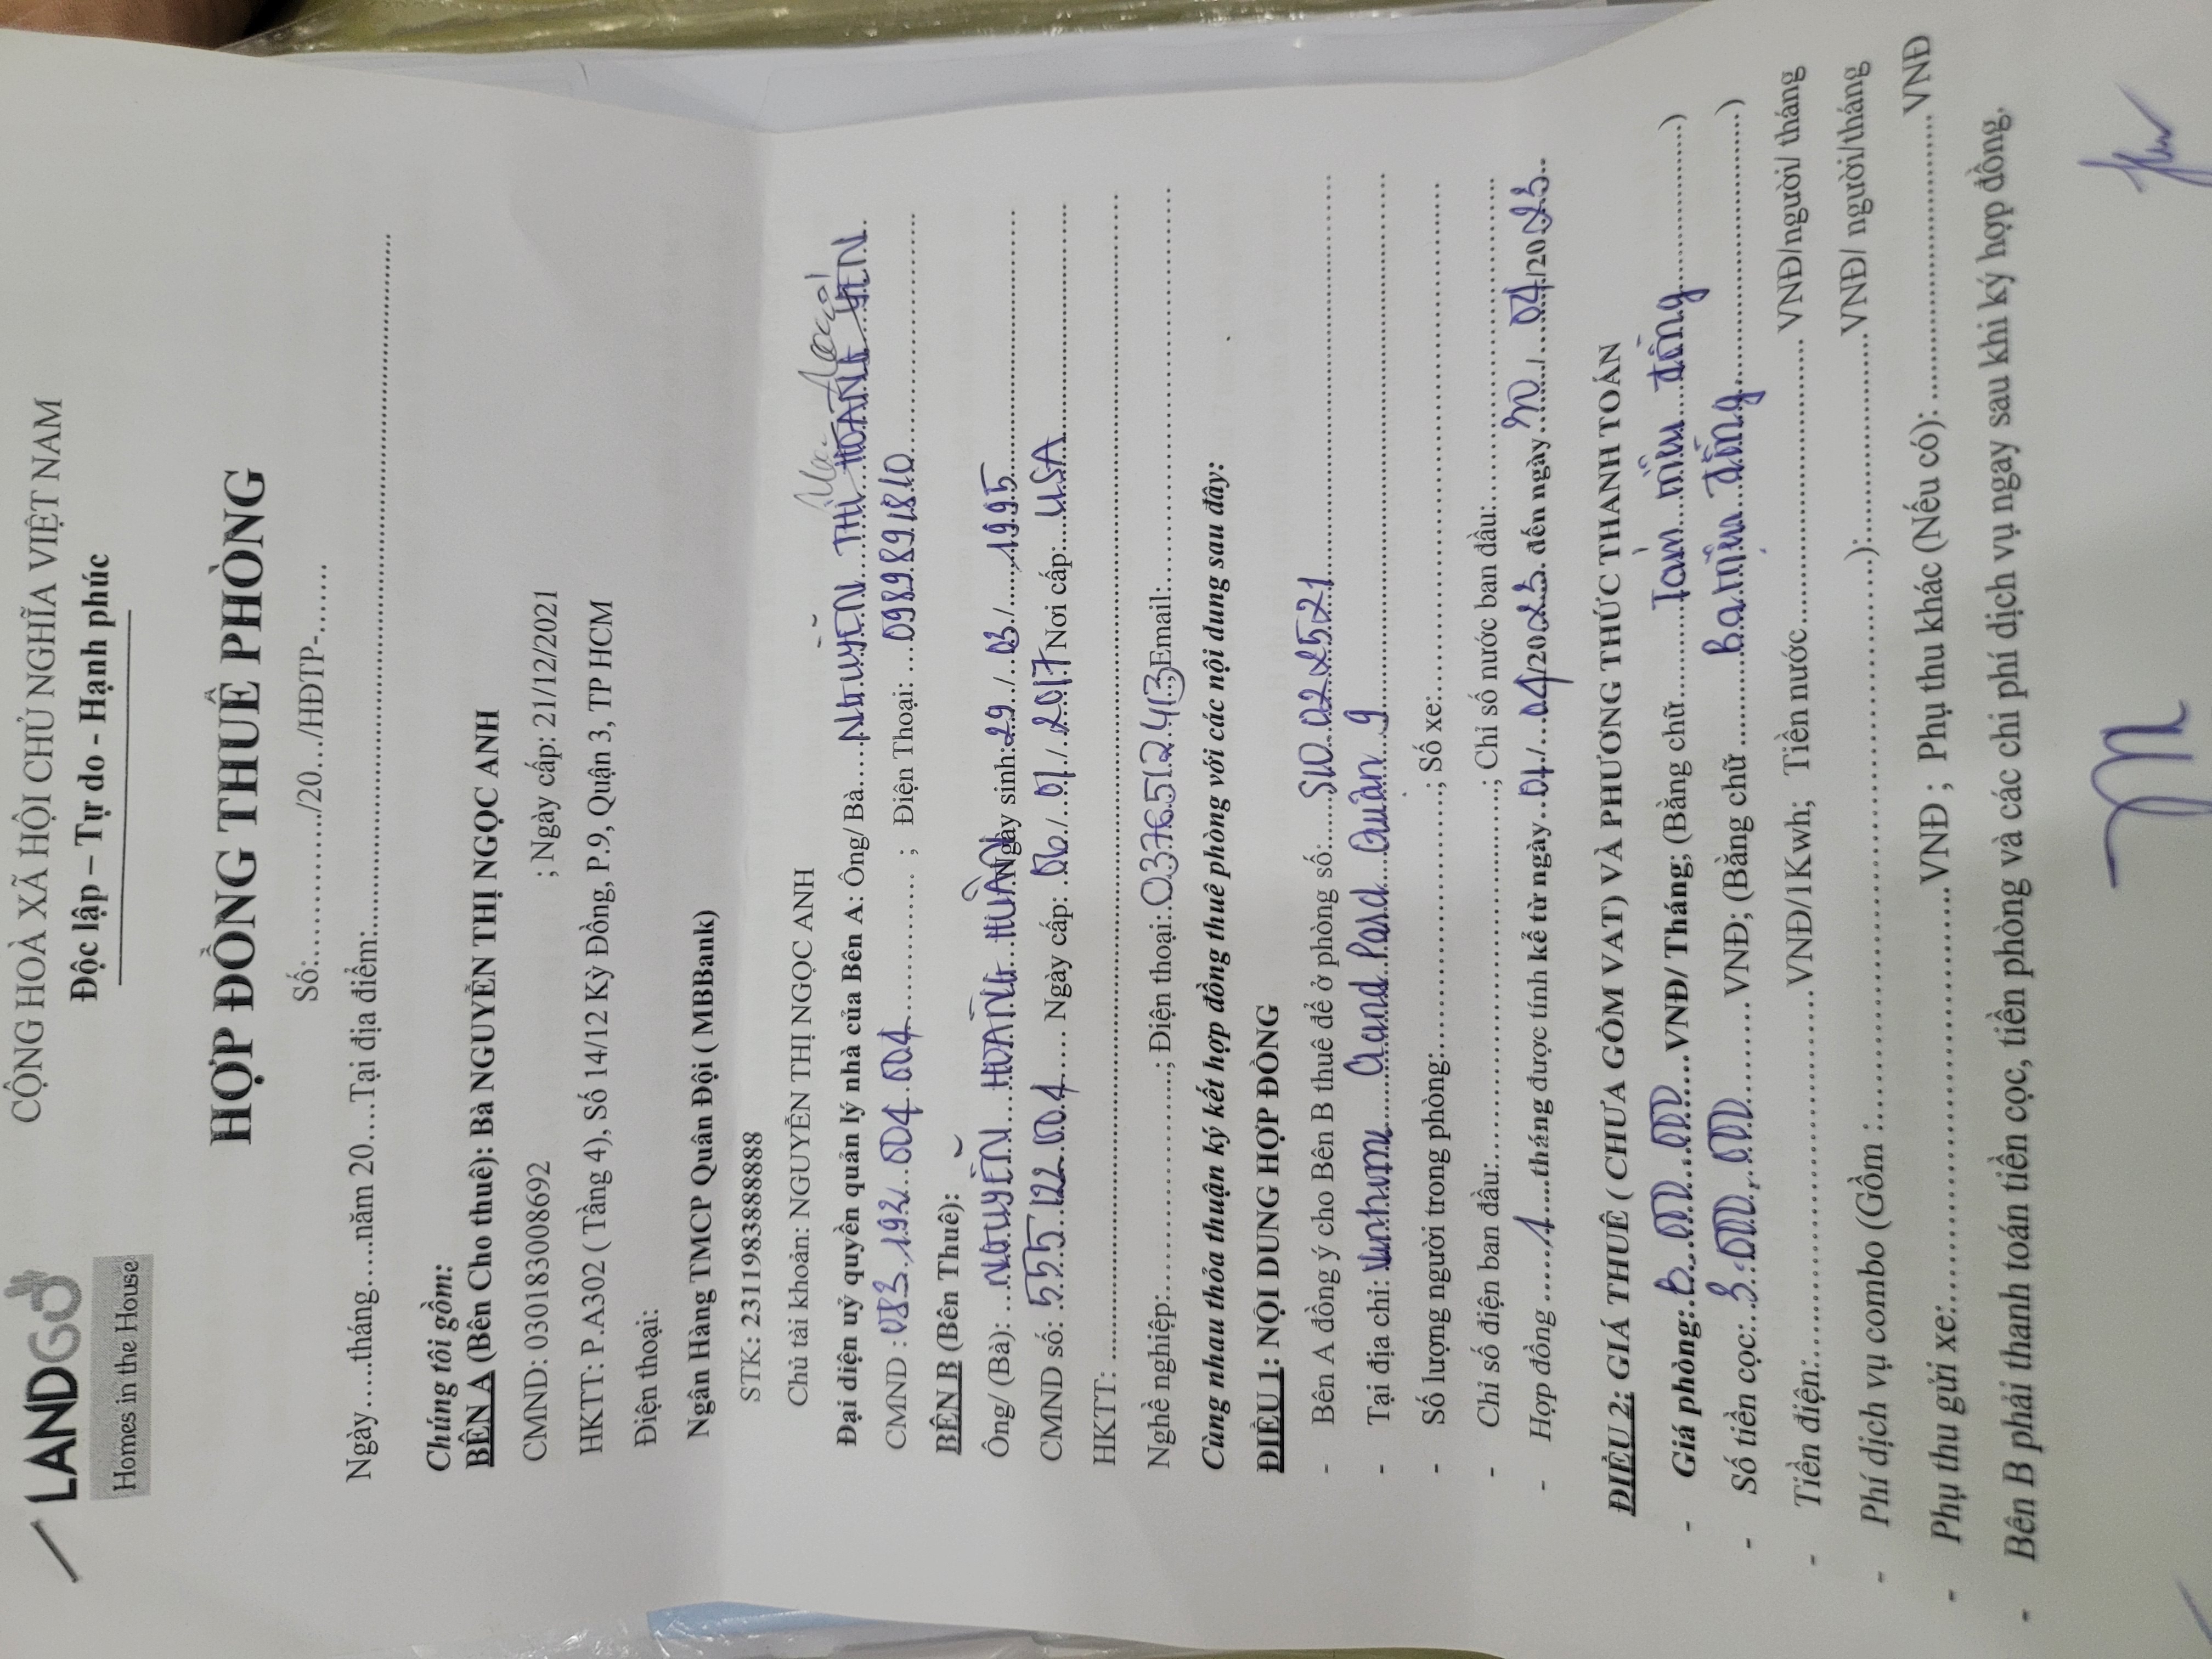 LANDGO
Homes in the House
CỘNG HOÀ XÃ HỘI CHỦ NGHĨA VIỆT NAM
Độc lập – Tự do - Hạnh phúc
HỢP ĐỒNG THUÊ PHÒNG
Số:............../20…/HĐTP-……
Ngày….tháng….năm 20…Tại địa điểm:
Chúng tôi gồm:
BÊN A (Bên Cho thuê): Bà NGUYỄN THỊ NGỌC ANH
CMND: 030183008692 ; Ngày cấp: 21/12/2021
HKTT: P.A302 ( Tầng 4), Số 14/12 Kỳ Đồng, P.9, Quận 3, TP HCM
Điện thoại:
Ngân Hàng TMCP Quân Đội ( MBBank)
STK: 2311983888888
Chủ tài khoản: NGUYỄN THỊ NGỌC ANH
Đại diện uỷ quyền quản lý nhà của Bên A: Ông/ Bà NGUYỄN THỊ HOÀNG YẾN
CMND : 083 192 004 004 ; Điện Thoại: 0989891810
BÊN B (Bên Thuê):
Ông/ (Bà): NGUYỄN HOÀNG HUÂN Ngày sinh: 29 / 03 / 1995
CMND số: 555 122 004 Ngày cấp: 06 / 01 / 2017 Nơi cấp: USA
HKTT:
Nghề nghiệp: ; Điện thoại: 0376512413 Email:
Cùng nhau thỏa thuận ký kết hợp đồng thuê phòng với các nội dung sau đây:
ĐIỀU 1: NỘI DUNG HỢP ĐỒNG
- Bên A đồng ý cho Bên B thuê để ở phòng số: S10.02.2521
- Tại địa chỉ: Vinhome Grand Park Quận 9
- Số lượng người trong phòng: ; Số xe:
- Chỉ số điện ban đầu: ; Chỉ số nước ban đầu:
- Hợp đồng 1 tháng được tính kể từ ngày 01 / 04/2023 đến ngày 30 / 04/2023
ĐIỀU 2: GIÁ THUÊ ( CHƯA GỒM VAT) VÀ PHƯƠNG THỨC THANH TOÁN
- Giá phòng: 8.000.000 VNĐ/ Tháng; (Bằng chữ Tám triệu đồng )
- Số tiền cọc: 3.000.000 VNĐ; (Bằng chữ Ba triệu đồng )
- Tiền điện: VNĐ/1Kwh; Tiền nước VNĐ/người/ tháng
- Phí dịch vụ combo (Gồm : ): VNĐ/ người/tháng
- Phụ thu gửi xe: VNĐ ; Phụ thu khác (Nếu có): VNĐ
- Bên B phải thanh toán tiền cọc, tiền phòng và các chi phí dịch vụ ngay sau khi ký hợp đồng.